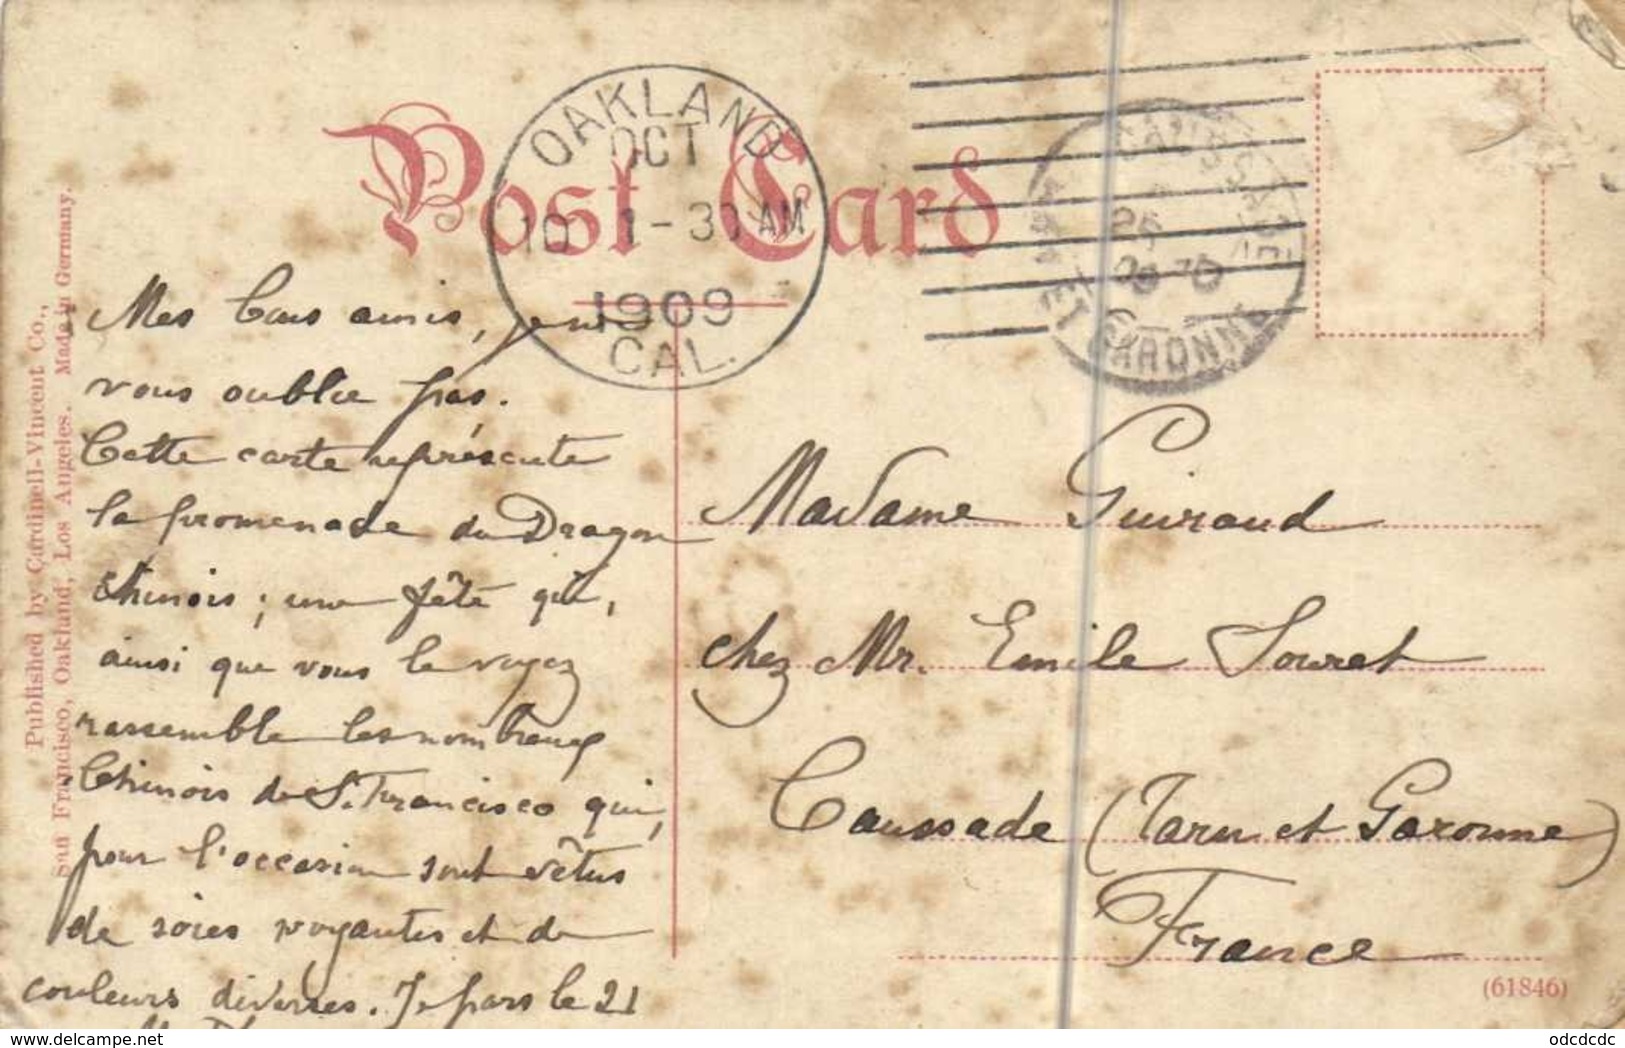 Post Card
OAKLAND
OCT
10 1-30 AM
1909
CAL.
CAUSSADE
25
09
ET GARONNE
Published by Cardinell-Vincent Co.,
San Francisco, Oakland, Los Angeles. Made in Germany.
Mes bons amis, je ne
vous oublie pas.
Cette carte représente
la promenade du Dragon
chinois ; une fête qui,
ainsi que vous le voyez
rassemble les nombreux
Chinois de S. Francisco qui,
pour l'occasion sont vêtus
de soies voyantes et de
couleurs diverses. Je pars le 21
Madame Guiraud
chez Mr. Emile Souret
Caussade (Tarn et Garonne)
France
(61846)
www.delcampe.net
odcdcdc